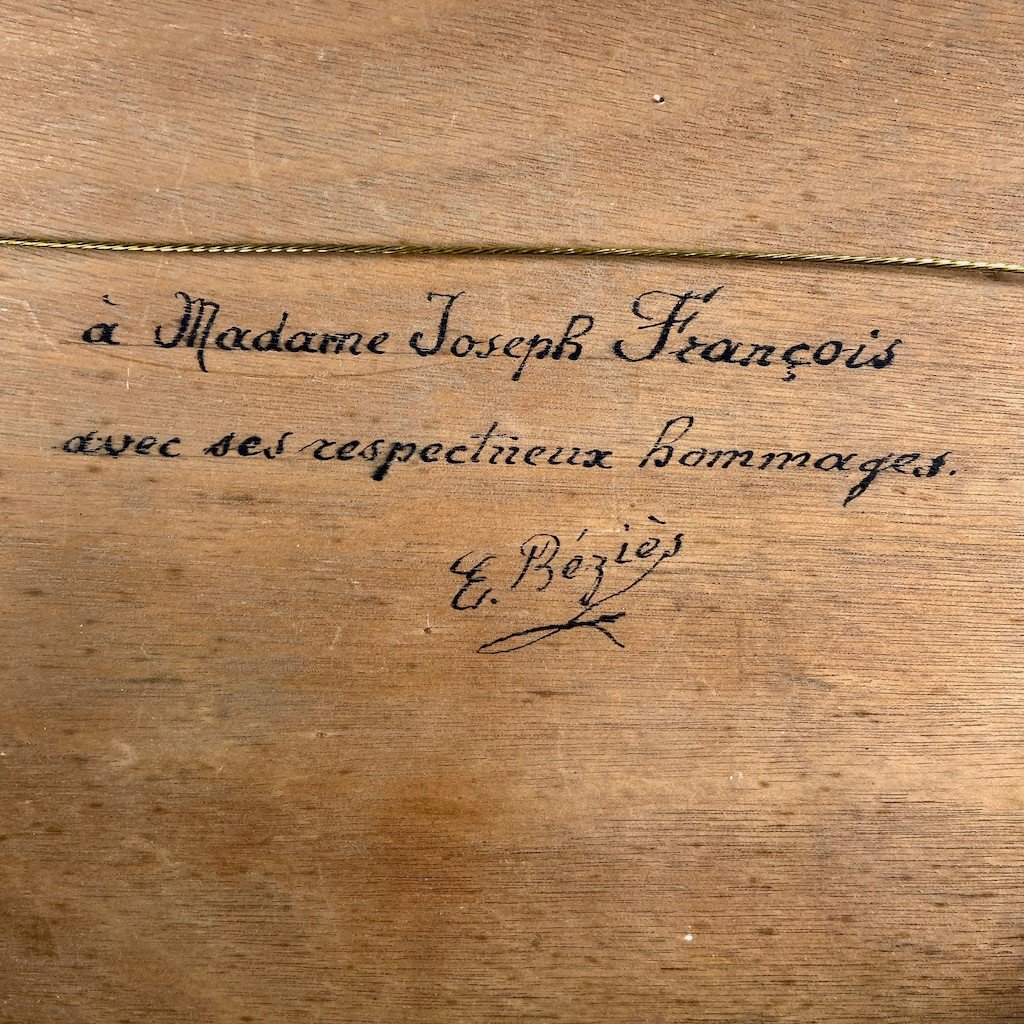 à Madame Joseph François
avec ses respectueux hommages.
E. Béziès